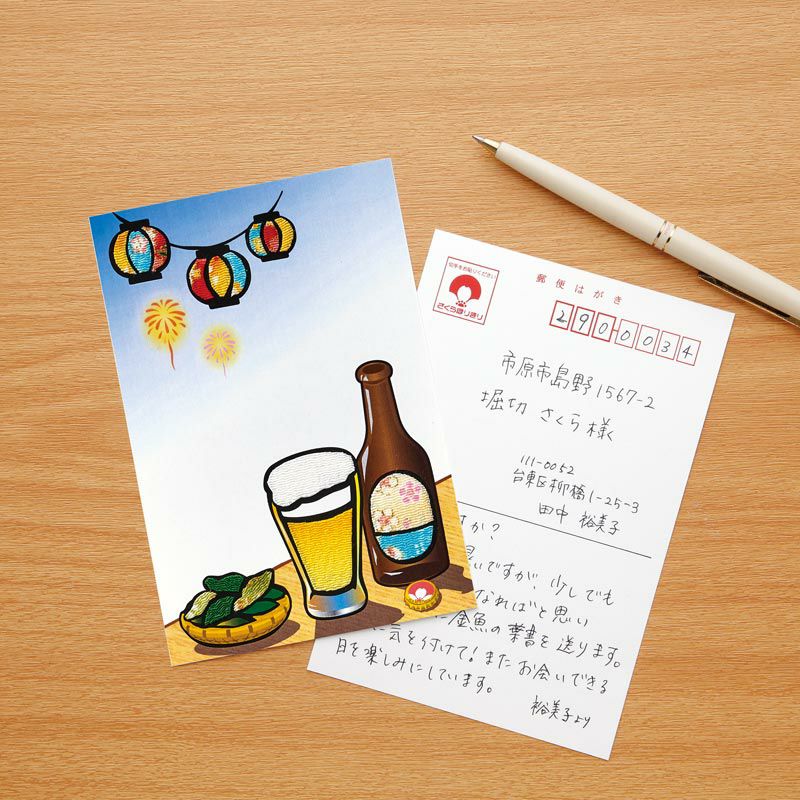 切手をお貼りください
さくらほりきり
郵便はがき
290-0034
市原市島野1567-2
堀切 さくら様
111-0052
台東区柳橋1-25-3
田中 裕美子
すか?
いですが、少しでも
なればと思い
金魚の葉書を送ります。
に気を付けて!またお会いできる
日を楽しみにしています。
裕美子より